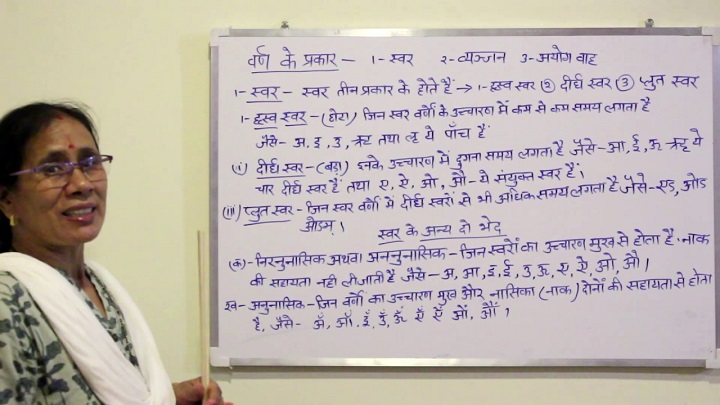 वर्ण के प्रकार – १-स्वर २-व्यञ्जन ३-अयोग वाह
१- स्वर – स्वर तीन प्रकार के होते हैं → १-ह्रस्व स्वर ② दीर्घ स्वर ③ प्लुत स्वर
१- ह्रस्व स्वर – (छोटा) जिन स्वर वर्णों के उच्चारण में कम से कम समय लगता है
जैसे- अ, इ, उ, ऋ तथा लृ ये पाँच हैं
(ii) दीर्घ स्वर – (बड़ा) इनके उच्चारण में दुगना समय लगता है जैसे – आ, ई, ऊ ॠ ये
चार दीर्घ स्वर हैं तथा ए, ऐ, ओ, औ – ये संयुक्त स्वर हैं।
(iii) प्लुत स्वर – जिन स्वर वर्णों में दीर्घ स्वरों से भी अधिक समय लगता है जैसे-
ओउम्।
स्वर के अन्य दो भेद
(क)- निरनुनासिक अथवा अननुनासिक – जिन स्वरों का उच्चारण मुख से होता है। नाक
की सहायता नही ली जाती है जैसे – अ, आ, इ, ई, उ, ऊ, ए, ऐ, ओ, औ।
ख- अनुनासिक – जिन वर्णों का उच्चारण मुख और नासिका (नाक) दोनों की सहायता से होता
है, जैसे- अँ, आँ, इँ, उँ, ऊँ, एँ ऐँ ओं, औं।